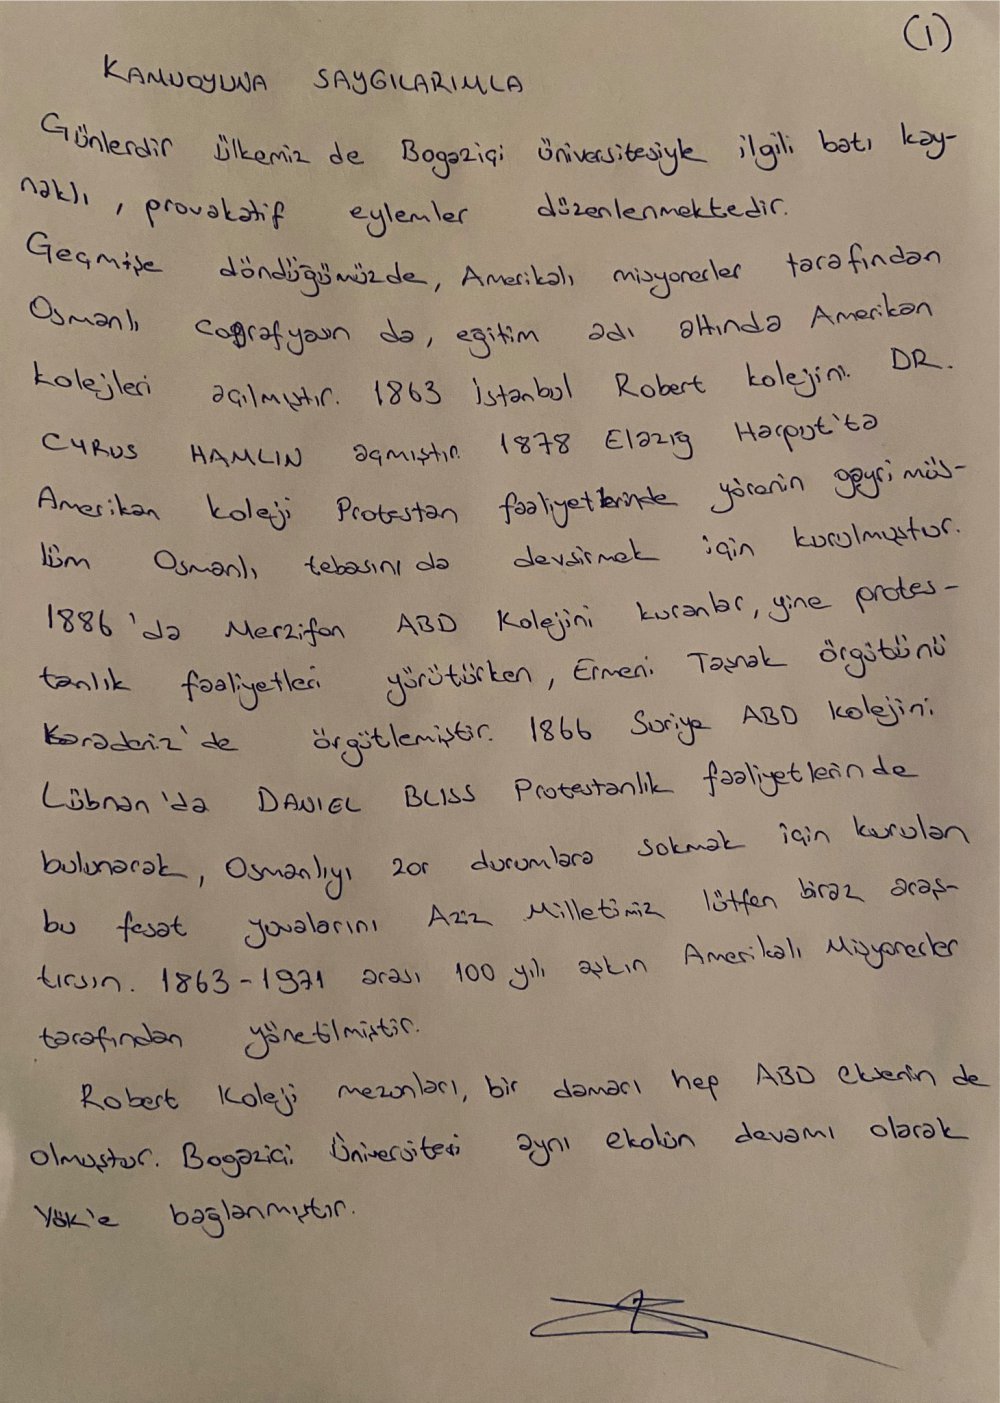 (1)
KAMUOYUNA SAYGILARIMLA
Günlerdir ülkemiz de Bogaziçi üniversitesiyle ilgili batı kay-
naklı, provakatif eylemler düzenlenmektedir.
Geçmişe döndüğümüzde, Amerikalı misyonerler tarafından
Osmanlı coğrafyasın da, eğitim adı altında Amerikan
kolejleri açılmıştır. 1863 İstanbul Robert kolejini. DR.
CYRUS HAMLIN açmıştır. 1878 Elazıg Harput'ta
Amerikan koleji Protestan faaliyetlerinde yörenin gayri müs-
lüm Osmanlı tebasını da devsirmek için kurulmuştur.
1886'da Merzifon ABD Kolejini kuranlar, yine protes-
tanlık faaliyetleri yürütürken, Ermeni Taşnak örgütünü
Karadeniz'de örgütlemiştir. 1866 Suriye ABD Kolejini
Lübnan'da DANIEL BLISS Protestanlık faaliyetlerin de
bulunarak, Osmanlıyı zor durumlara sokmak için kurulan
bu fesat yuvalarını Aziz Milletimiz lütfen biraz araş-
tırsın. 1863-1971 arası 100 yılı aşkın Amerikalı Misyonerler
tarafından yönetilmiştir.
Robert Koleji mezunları, bir damarı hep ABD eksenin de
olmuştur. Bogaziçi Üniversitesi aynı ekolün devamı olarak
YÖK'e bağlanmıştır.